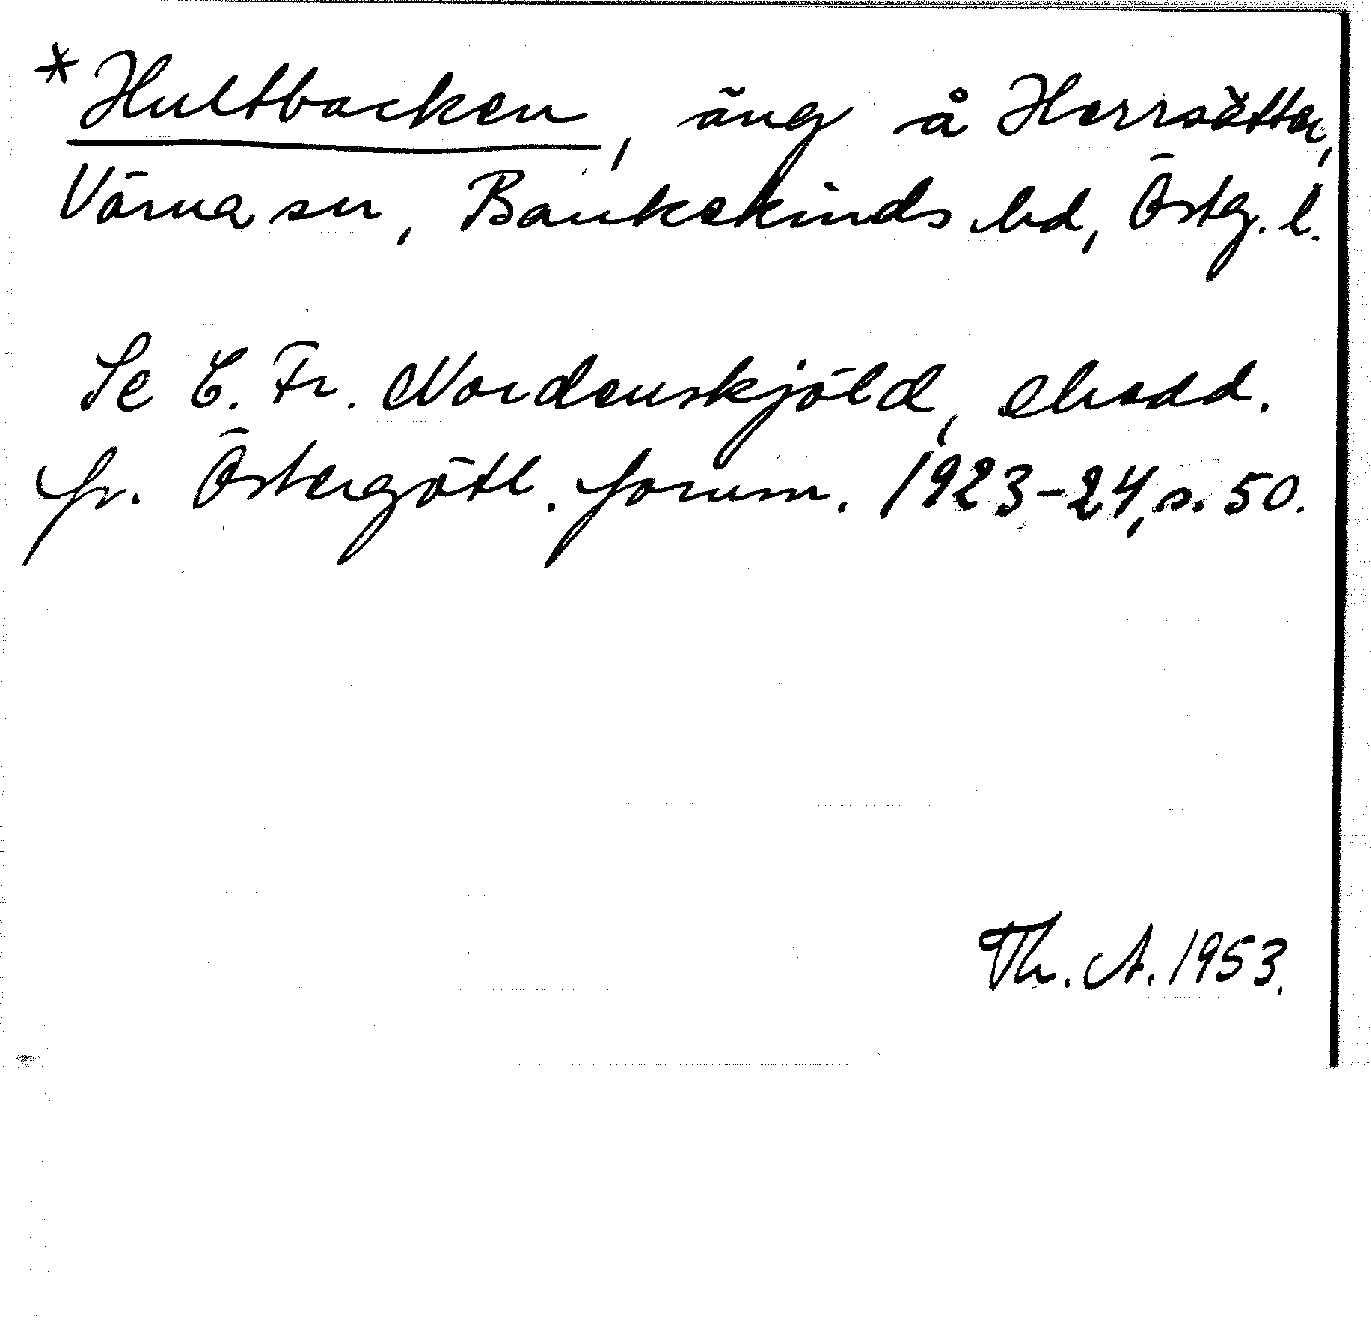 * Hultbacken, äng å Herrsätter,
Värna sn, Bankekinds hd, Östg. l.
Se C. Fr. Nordenskjöld, Medd.
fr. Östergötl. fornm. 1923-24, s. 50.
Th. A. 1953.